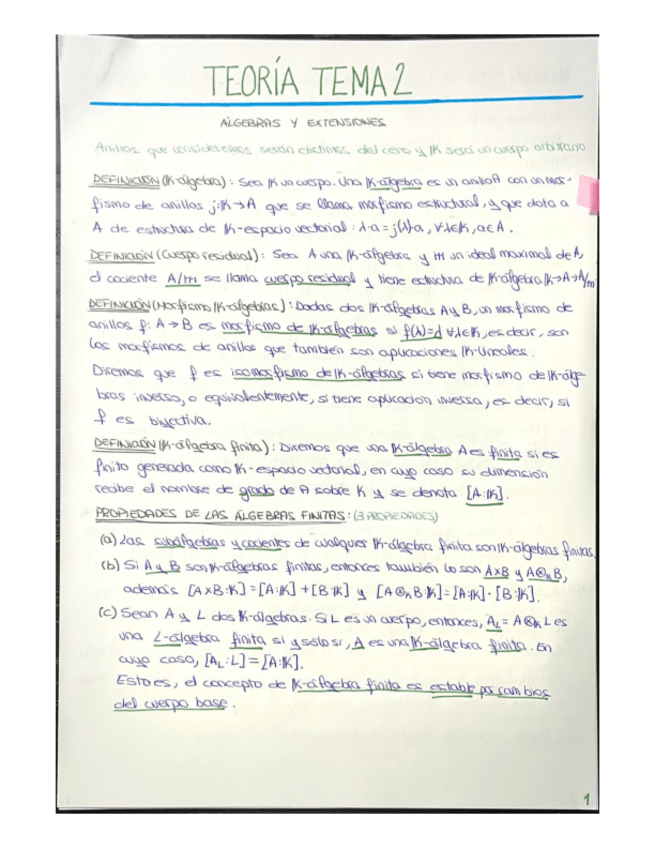 TEORÍA TEMA 2
ÁLGEBRAS Y EXTENSIONES
Anillos que consideremos serán distintos del cero y K será un cuerpo arbitrario
DEFINICIÓN (K-álgebra): Sea K un cuerpo. Una K-álgebra es un anillo A con un mor-
fismo de anillos j: K → A que se llama morfismo estructural, y que dota a
A de estructura de K-espacio vectorial: λ·a = j(λ)a, ∀λ∈K, a∈A.
DEFINICIÓN (Cuerpo residual): Sea A una K-álgebra y m un ideal maximal de A,
el cociente A/m se llama cuerpo residual y tiene estructura de K-álgebra K→A→A/m
DEFINICIÓN (Morfismo K-álgebras): Dadas dos K-álgebras A y B, un morfismo de
anillos f: A → B es morfismo de K-álgebras si f(λ)=λ ∀λ∈K, es decir, son
los morfismos de anillos que también son aplicaciones K-lineales.
Diremos que f es isomorfismo de K-álgebras si tiene morfismo de K-álge-
bras inverso, o equivalentemente, si tiene aplicación inversa, es decir, si
f es biyectiva.
DEFINICIÓN (K-álgebra finita): Diremos que una K-álgebra A es finita si es
finito generada como K-espacio vectorial, en cuyo caso su dimensión
recibe el nombre de grado de A sobre K y se denota [A:K].
PROPIEDADES DE LAS ÁLGEBRAS FINITAS: (3 PROPIEDADES)
(a) Las subálgebras y cocientes de cualquier K-álgebra finita son K-álgebras finitas.
(b) Si A y B son K-álgebras finitas, entonces también lo son A×B y A⊗ₖB,
además [A×B:K]=[A:K]+[B:K] y [A⊗ₖB:K]=[A:K]·[B:K].
(c) Sean A y L dos K-álgebras. Si L es un cuerpo, entonces, A_L = A⊗ₖL es
una L-álgebra finita si y sólo si, A es una K-álgebra finita. En
cuyo caso, [A_L:L]=[A:K].
Esto es, el concepto de K-álgebra finita es estable por cambios
del cuerpo base.
1